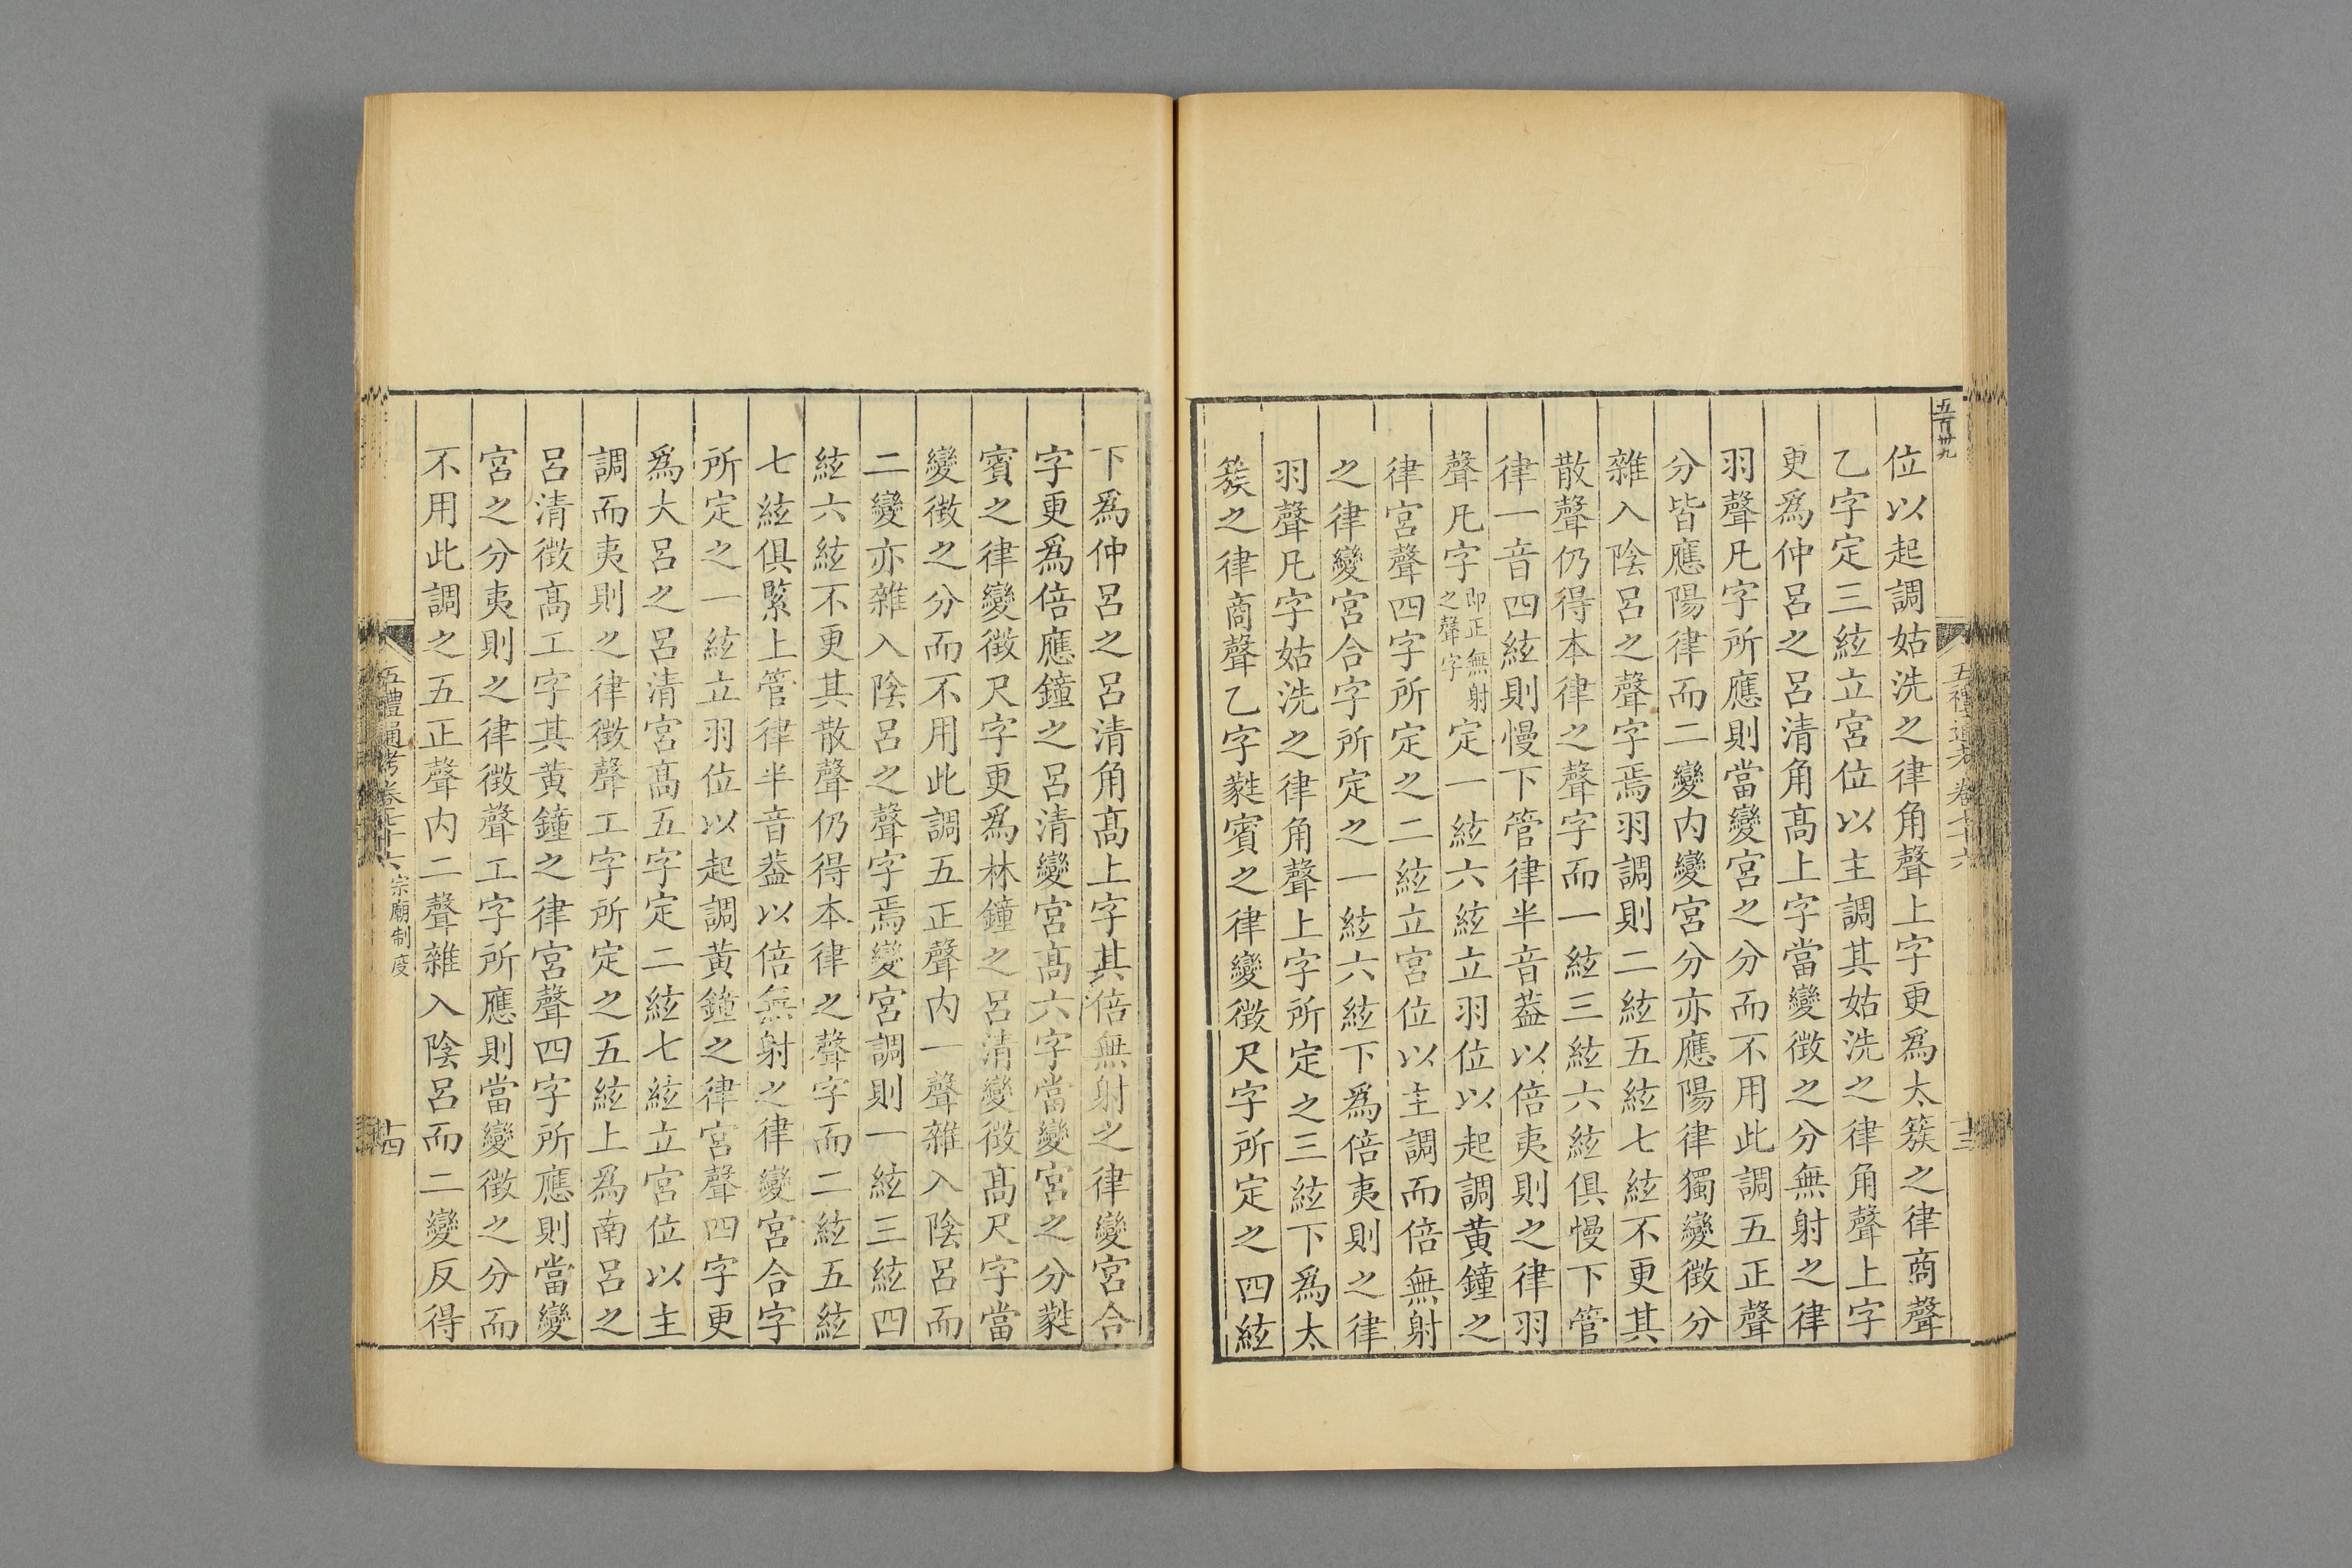 五百卅九
位以起調姑洗之律角聲上字更爲太簇之律商聲
乙字定三絃立宮位以主調其姑洗之律角聲上字
更爲仲呂之呂清角高上字當變徵之分無射之律
羽聲凡字所應則當變宮之分而不用此調五正聲
分皆應陽律而二變内變宮分亦應陽律獨變徵分
雜入陰呂之聲字焉羽調則二絃五絃七絃不更其
散聲仍得本律之聲字而一絃三絃六絃俱慢下管
律一音四絃則慢下管律半音葢以倍夷則之律羽
聲凡字即正無射之聲字定一絃六絃立羽位以起調黄鐘之
律宮聲四字所定之二絃立宮位以主調而倍無射
之律變宮合字所定之一絃六絃下爲倍夷則之律
羽聲凡字姑洗之律角聲上字所定之三絃下爲太
簇之律商聲乙字蕤賓之律變徵尺字所定之四絃
五禮通考卷七十六
十三
下爲仲呂之呂清角高上字其倍無射之律變宮合
字更爲倍應鐘之呂清變宮高六字當變宮之分蕤
賓之律變徵尺字更爲林鐘之呂清變徵高尺字當
變徵之分而不用此調五正聲内一聲雜入陰呂而
二變亦雜入陰呂之聲字焉變宮調則一絃三絃四
絃六絃不更其散聲仍得本律之聲字而二絃五絃
七絃俱緊上管律半音葢以倍無射之律變宮合字
所定之一絃立羽位以起調黄鐘之律宮聲四字更
爲大呂之呂清宮高五字定二絃七絃立宮位以主
調而夷則之律徵聲工字所定之五絃上爲南呂之
呂清徵高工字其黄鐘之律宮聲四字所應則當變
宮之分夷則之律徵聲工字所應則當變徵之分而
不用此調之五正聲内二聲雜入陰呂而二變反得
五禮通考卷七十六 宗廟制度
十四